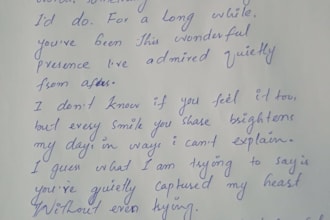 I'd do. For a long while.
you've been this wonderful
presence I've admired quietly
from afar.
I don't know if you feel it too,
but every smile you share brightens
my day in ways i can't explain.
I guess what I am trying to say is
you've quietly captured my heart
Without even trying.